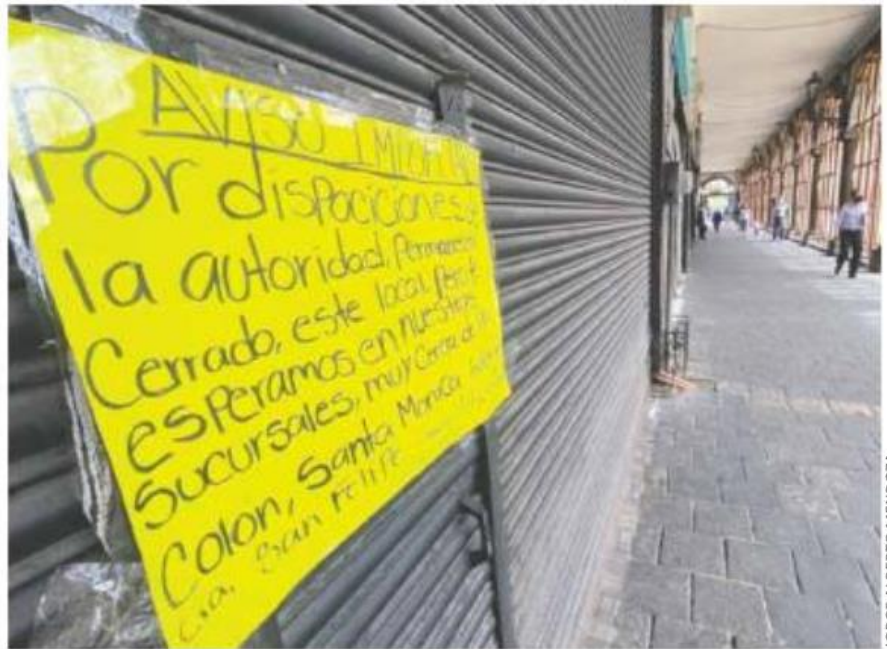 AVISO IMPORTANTE
Por disposiciones de
la autoridad, Permanece
Cerrado, este local, Pero te
esperamos en nuestras
sucursales, muy Cerca de
Colon, Santa Monica,
San Felipe